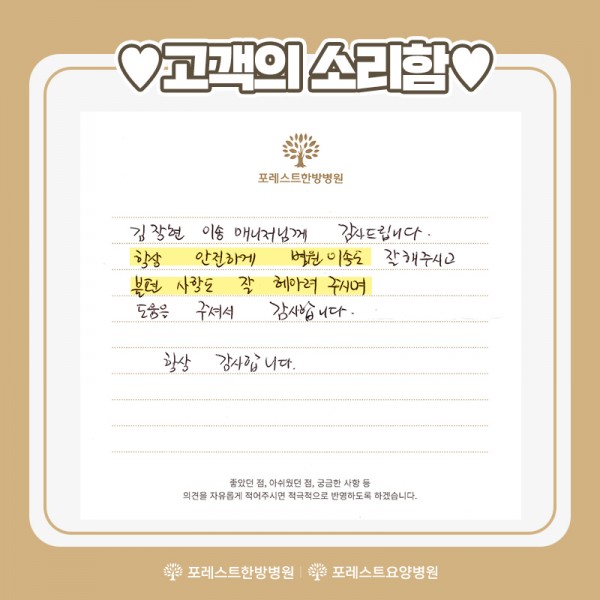 ♥고객의 소리함♥
포레스트한방병원
김장현 이송 매니저님께 감사드립니다.
항상 안전하게 병원 이송도 잘해주시고
불편 사항도 잘 헤아려 주시며
도움을 주셔서 감사합니다.
항상 감사합니다.
좋았던 점, 아쉬웠던 점, 궁금한 사항 등
의견을 자유롭게 적어주시면 적극적으로 반영하도록 하겠습니다.
포레스트한방병원 | 포레스트요양병원